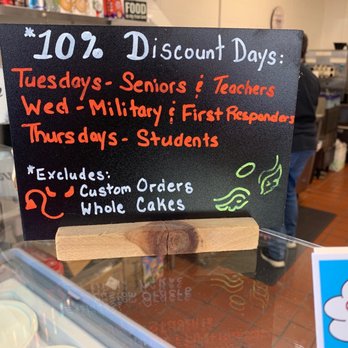 FOOD
*10% Discount Days:
Tuesdays - Seniors & Teachers
Wed - Military & First Responders
Thursdays - Students
*Excludes:
Custom Orders
Whole Cakes